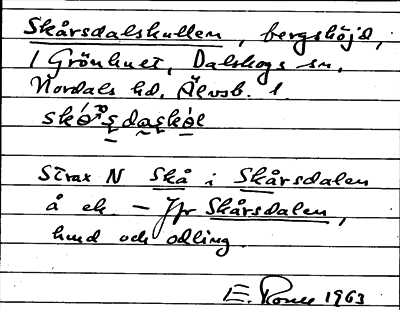 Skårsdalskullen, bergshöjd,
i Grönhuet, Dalskogs sn,
Nordals hd, Älvsb. l.
Strax N Skå i Skårsdalen
å ek. – Jfr Skårsdalen,
hmd och odling.
E. 1963